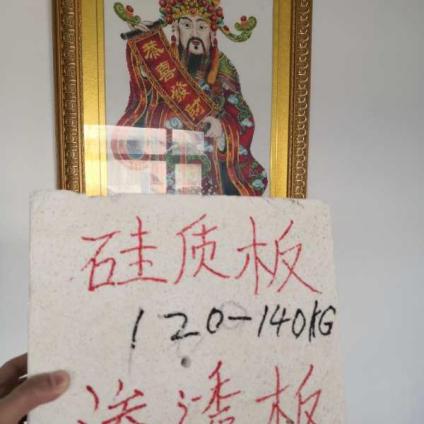 恭喜發財
硅质板
120-140KG
渗透板